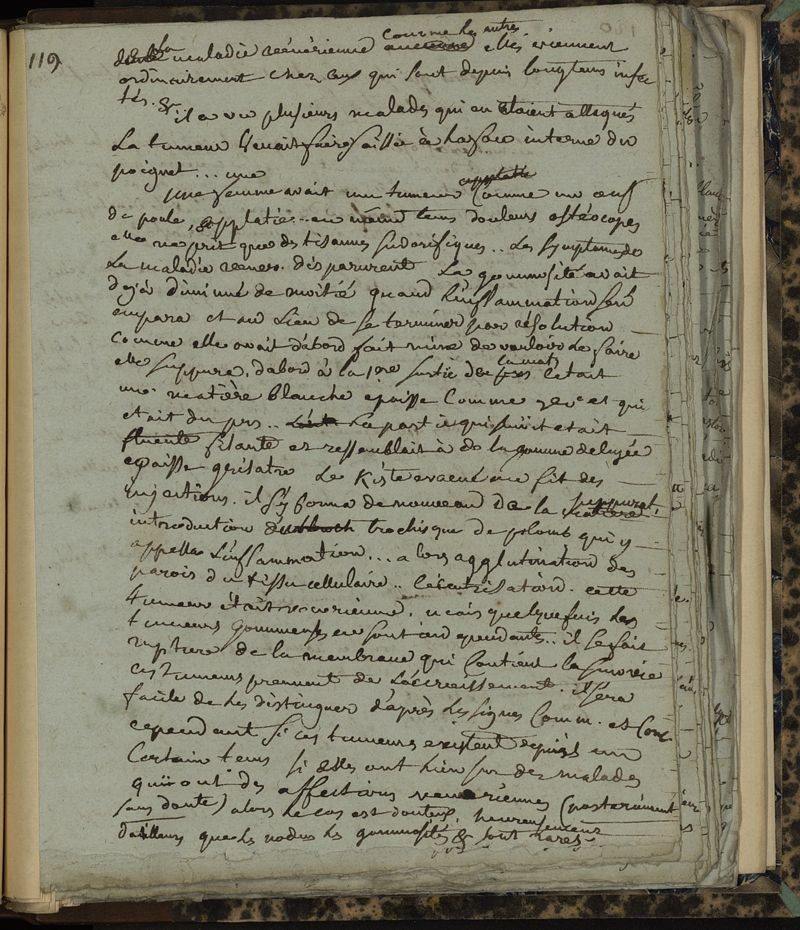 119
la maladie vénérienne comme les autres elles viennent
ordinairement chez ceux qui sont depuis longtems infec
tés. &
il a vu plusieurs malades qui en etoient attaqués
La tumeur venait faire saillie à la face interne du
poignet... une
une femme avait une tumeur comme un œuf
de poule, applatie.. en même tems douleurs ostéocopes
elle ne prit que des tisannes sudorifiques.. Les symptomes de
La maladie vener. disparurent La gommosité avait
deja diminué de moitié quand l'inflammation s'en
empara et au Lieu de se terminer par résolution
comme elle avait d'abord fait mine de vouloir Le faire
elle suppura. d'abord à la 1ere sortie de la mat. c'etait
une matière blanche epaisse comme et qui
etait du pus.. La partie qui suivit etait
filante et ressemblait à de la gomme delayée
epaisse grisatre Le Kiste evacué on fit des
injections. il s'y forma de nouveau de la suppurat.
introduction trochisque de plomb qui y
appella L'inflammation... alors agglutination des
parois du tissu cellulaire.. cicatrisation. cette
tumeur était venerienne. mais quelquefois Les
tumeurs gommeuses en sont independants.. il se fait
rupture de la membrane qui contient la sinovie
ces tumeurs prennent de L'accroissement. il sera
facile de Les distinguer d'après Les signes Comm. et Conc
cependant si ces tumeurs existent depuis un
Certain tems si elles ont Lieu sur des malades
qui ont des affections veneriennes (posterieurement
sans doute) alors Le cas est douteux, heureusement
d'ailleurs que Les nodus Les gommosités & sont rares